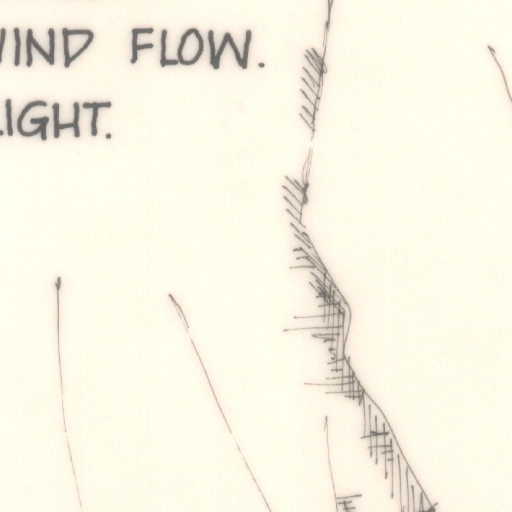 WIND FLOW.
LIGHT.